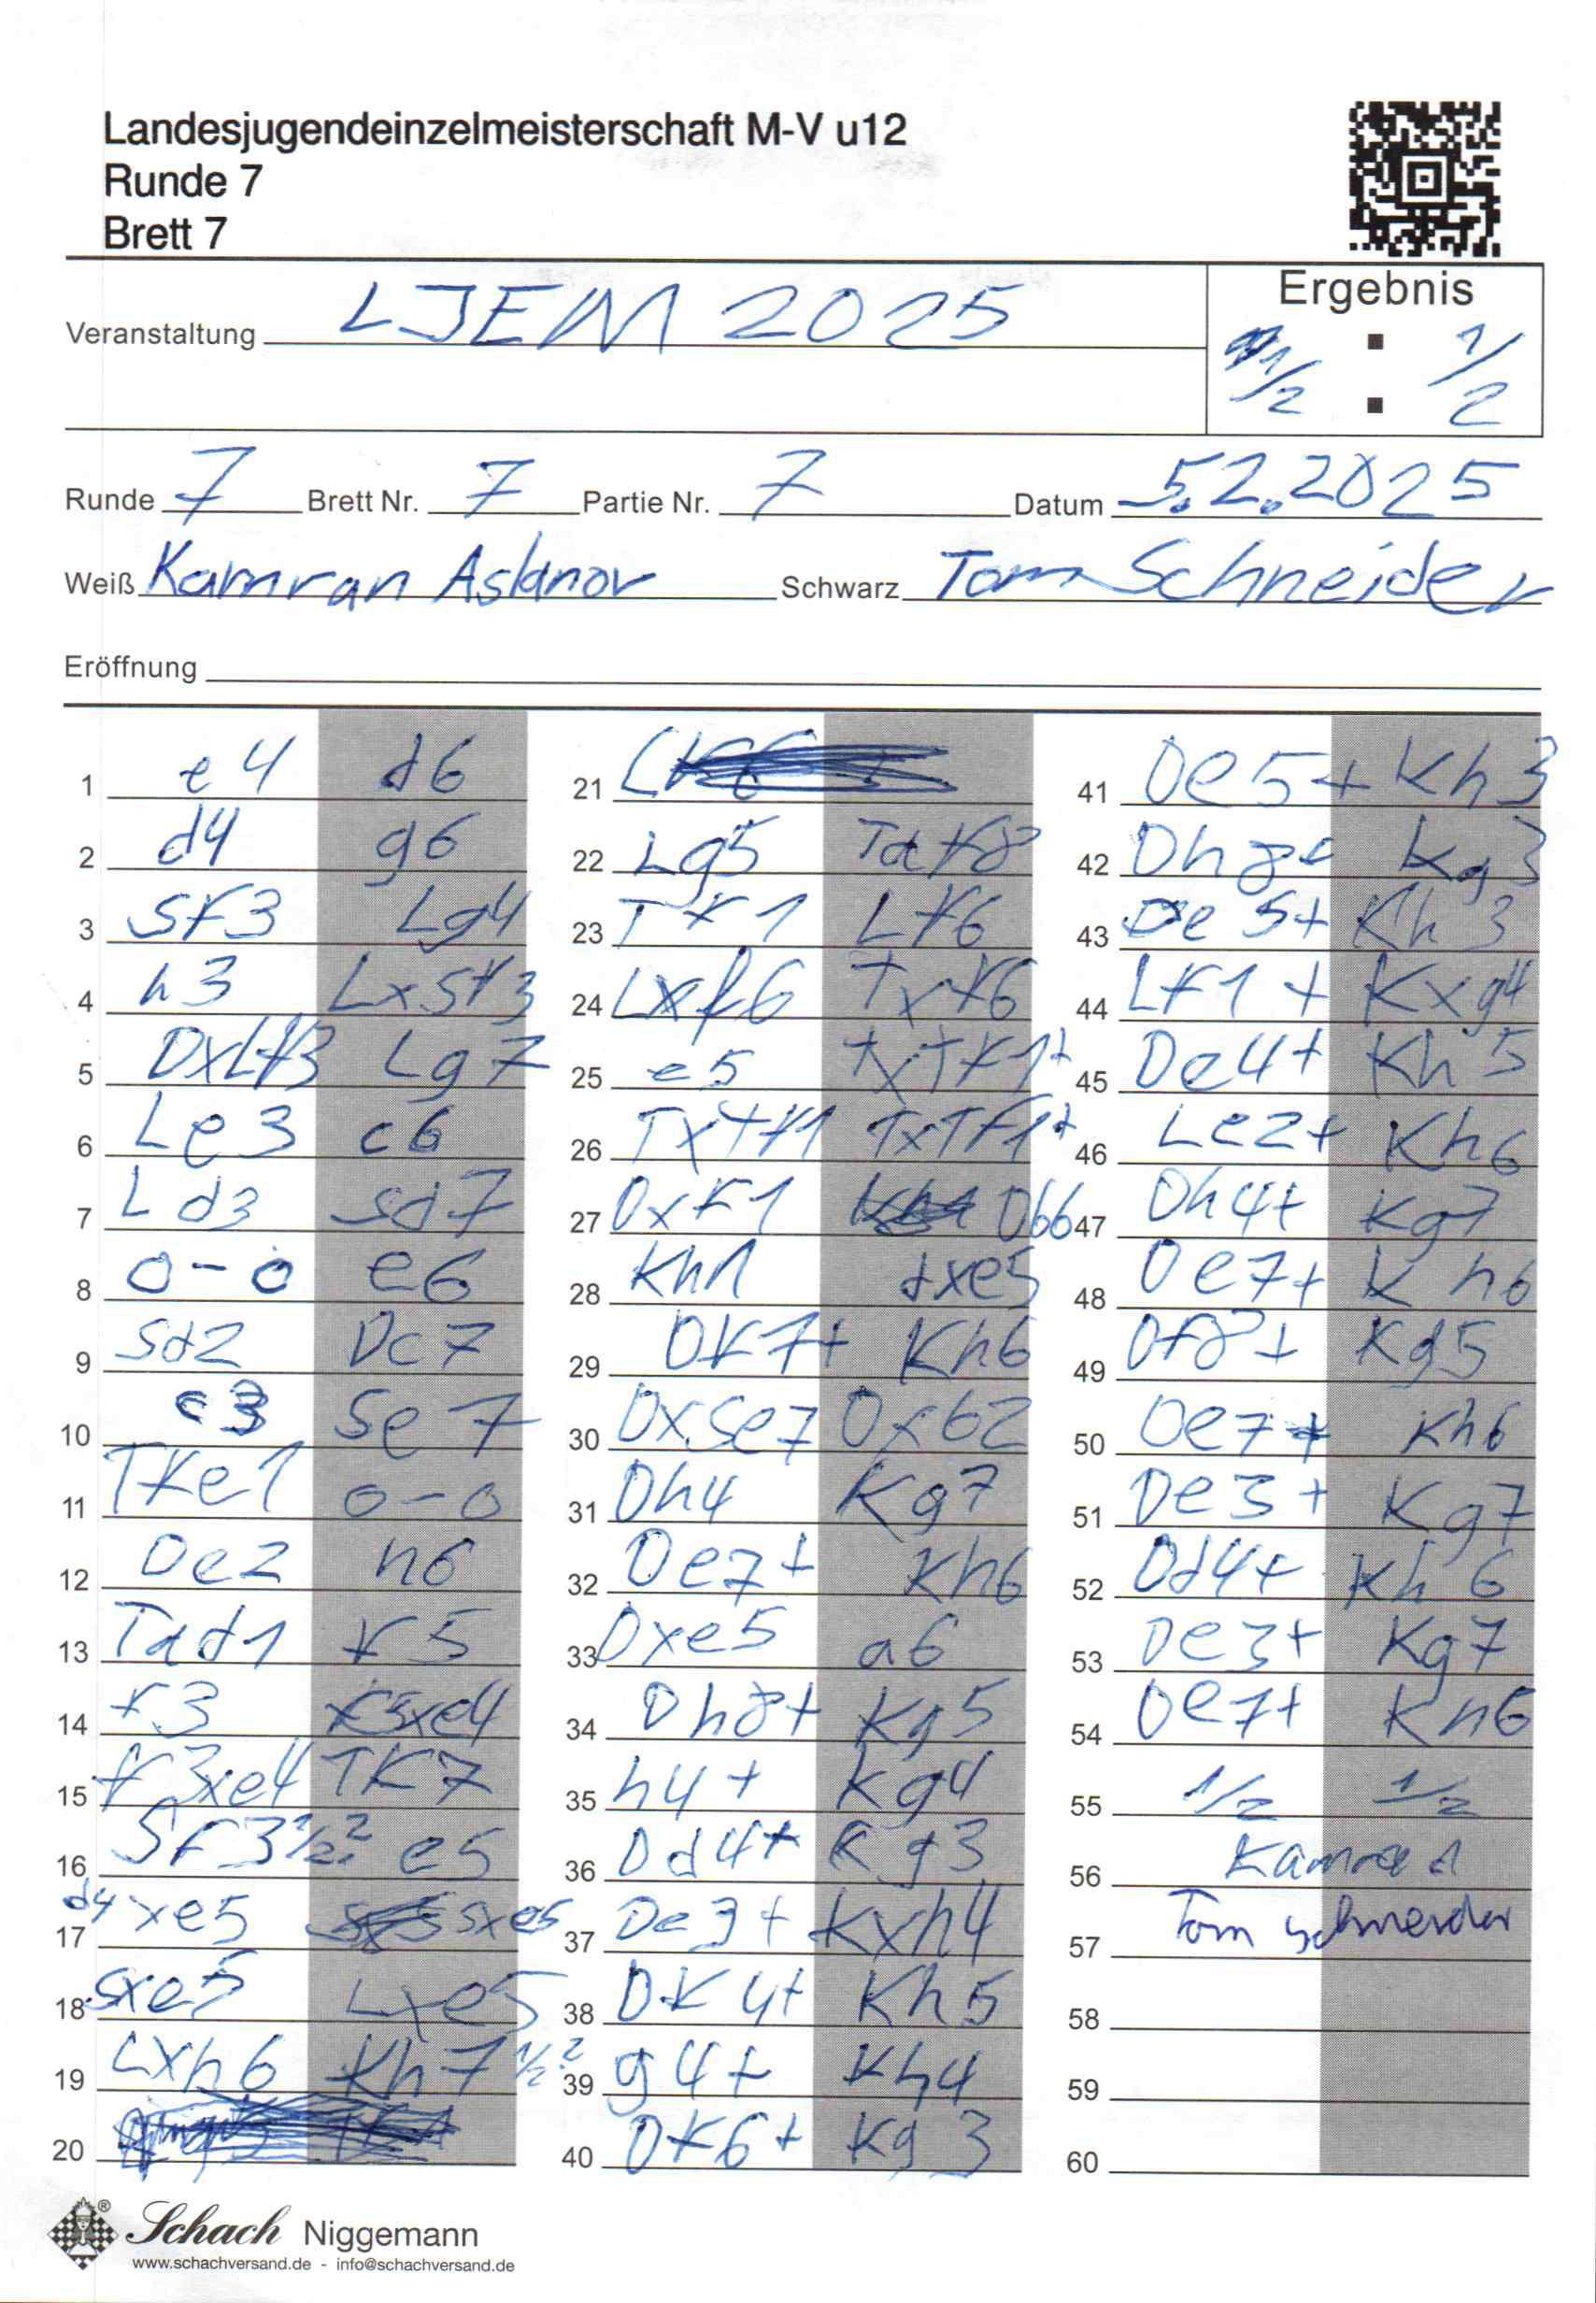 Landesjugendeinzelmeisterschaft M-V u12
Runde 7
Brett 7
Ergebnis
Veranstaltung LJEM 2025
1/2 : 1/2
Runde 7 Brett Nr. 7 Partie Nr. 7 Datum 5.2.2025
Weiß Kamran Aslanov Schwarz Tom Schneider
Eröffnung
1 e4 d6
2 d4 g6
3 Sf3 Lg4
4 h3 LxSf3
5 DxLf3 Lg7
6 Le3 c6
7 Ld3 Sd7
8 0-0 e6
9 Sd2 Dc7
10 c3 Se7
11 Tfe1 0-0
12 De2 h6
13 Tad1 f5
14 f3 f5xe4
15 f3xe4 Tf7
16 Sf3 1/2? e5
17 d4xe5 Sxe5
18 Sxe5 Lxe5
19 Lxh6 Kh7 1/2?
20
21
22 Lg5 Taf8
23 Tf1 Lf6
24 Lxf6 Txf6
25 e5 TxTf1+
26 TxTf1 TxTf1+
27 Dxf1 Db6
28 Kh1 dxe5
29 Df7+ Kh6
30 DxSe7 Dxb2
31 Dh4 Kg7
32 De7+ Kh6
33 Dxe5 a6
34 Dh8+ Kg5
35 h4+ Kg4
36 Dd4+ Kg3
37 De3+ Kxh4
38 Df4+ Kh5
39 g4+ Kh4
40 Df6+ Kg3
41 De5+ Kh3
42 Dh8+ Kg3
43 De5+ Kh3
44 Lf1+ Kxg4
45 De4+ Kh5
46 Le2+ Kh6
47 Dh4+ Kg7
48 De7+ Kh6
49 Df8+ Kg5
50 De7+ Kh6
51 De3+ Kg7
52 Dd4+ Kh6
53 De3+ Kg7
54 De7+ Kh6
55 1/2 1/2
56 Kamran
57 Tom Schneider
58
59
60
Schach Niggemann
www.schachversand.de - info@schachversand.de